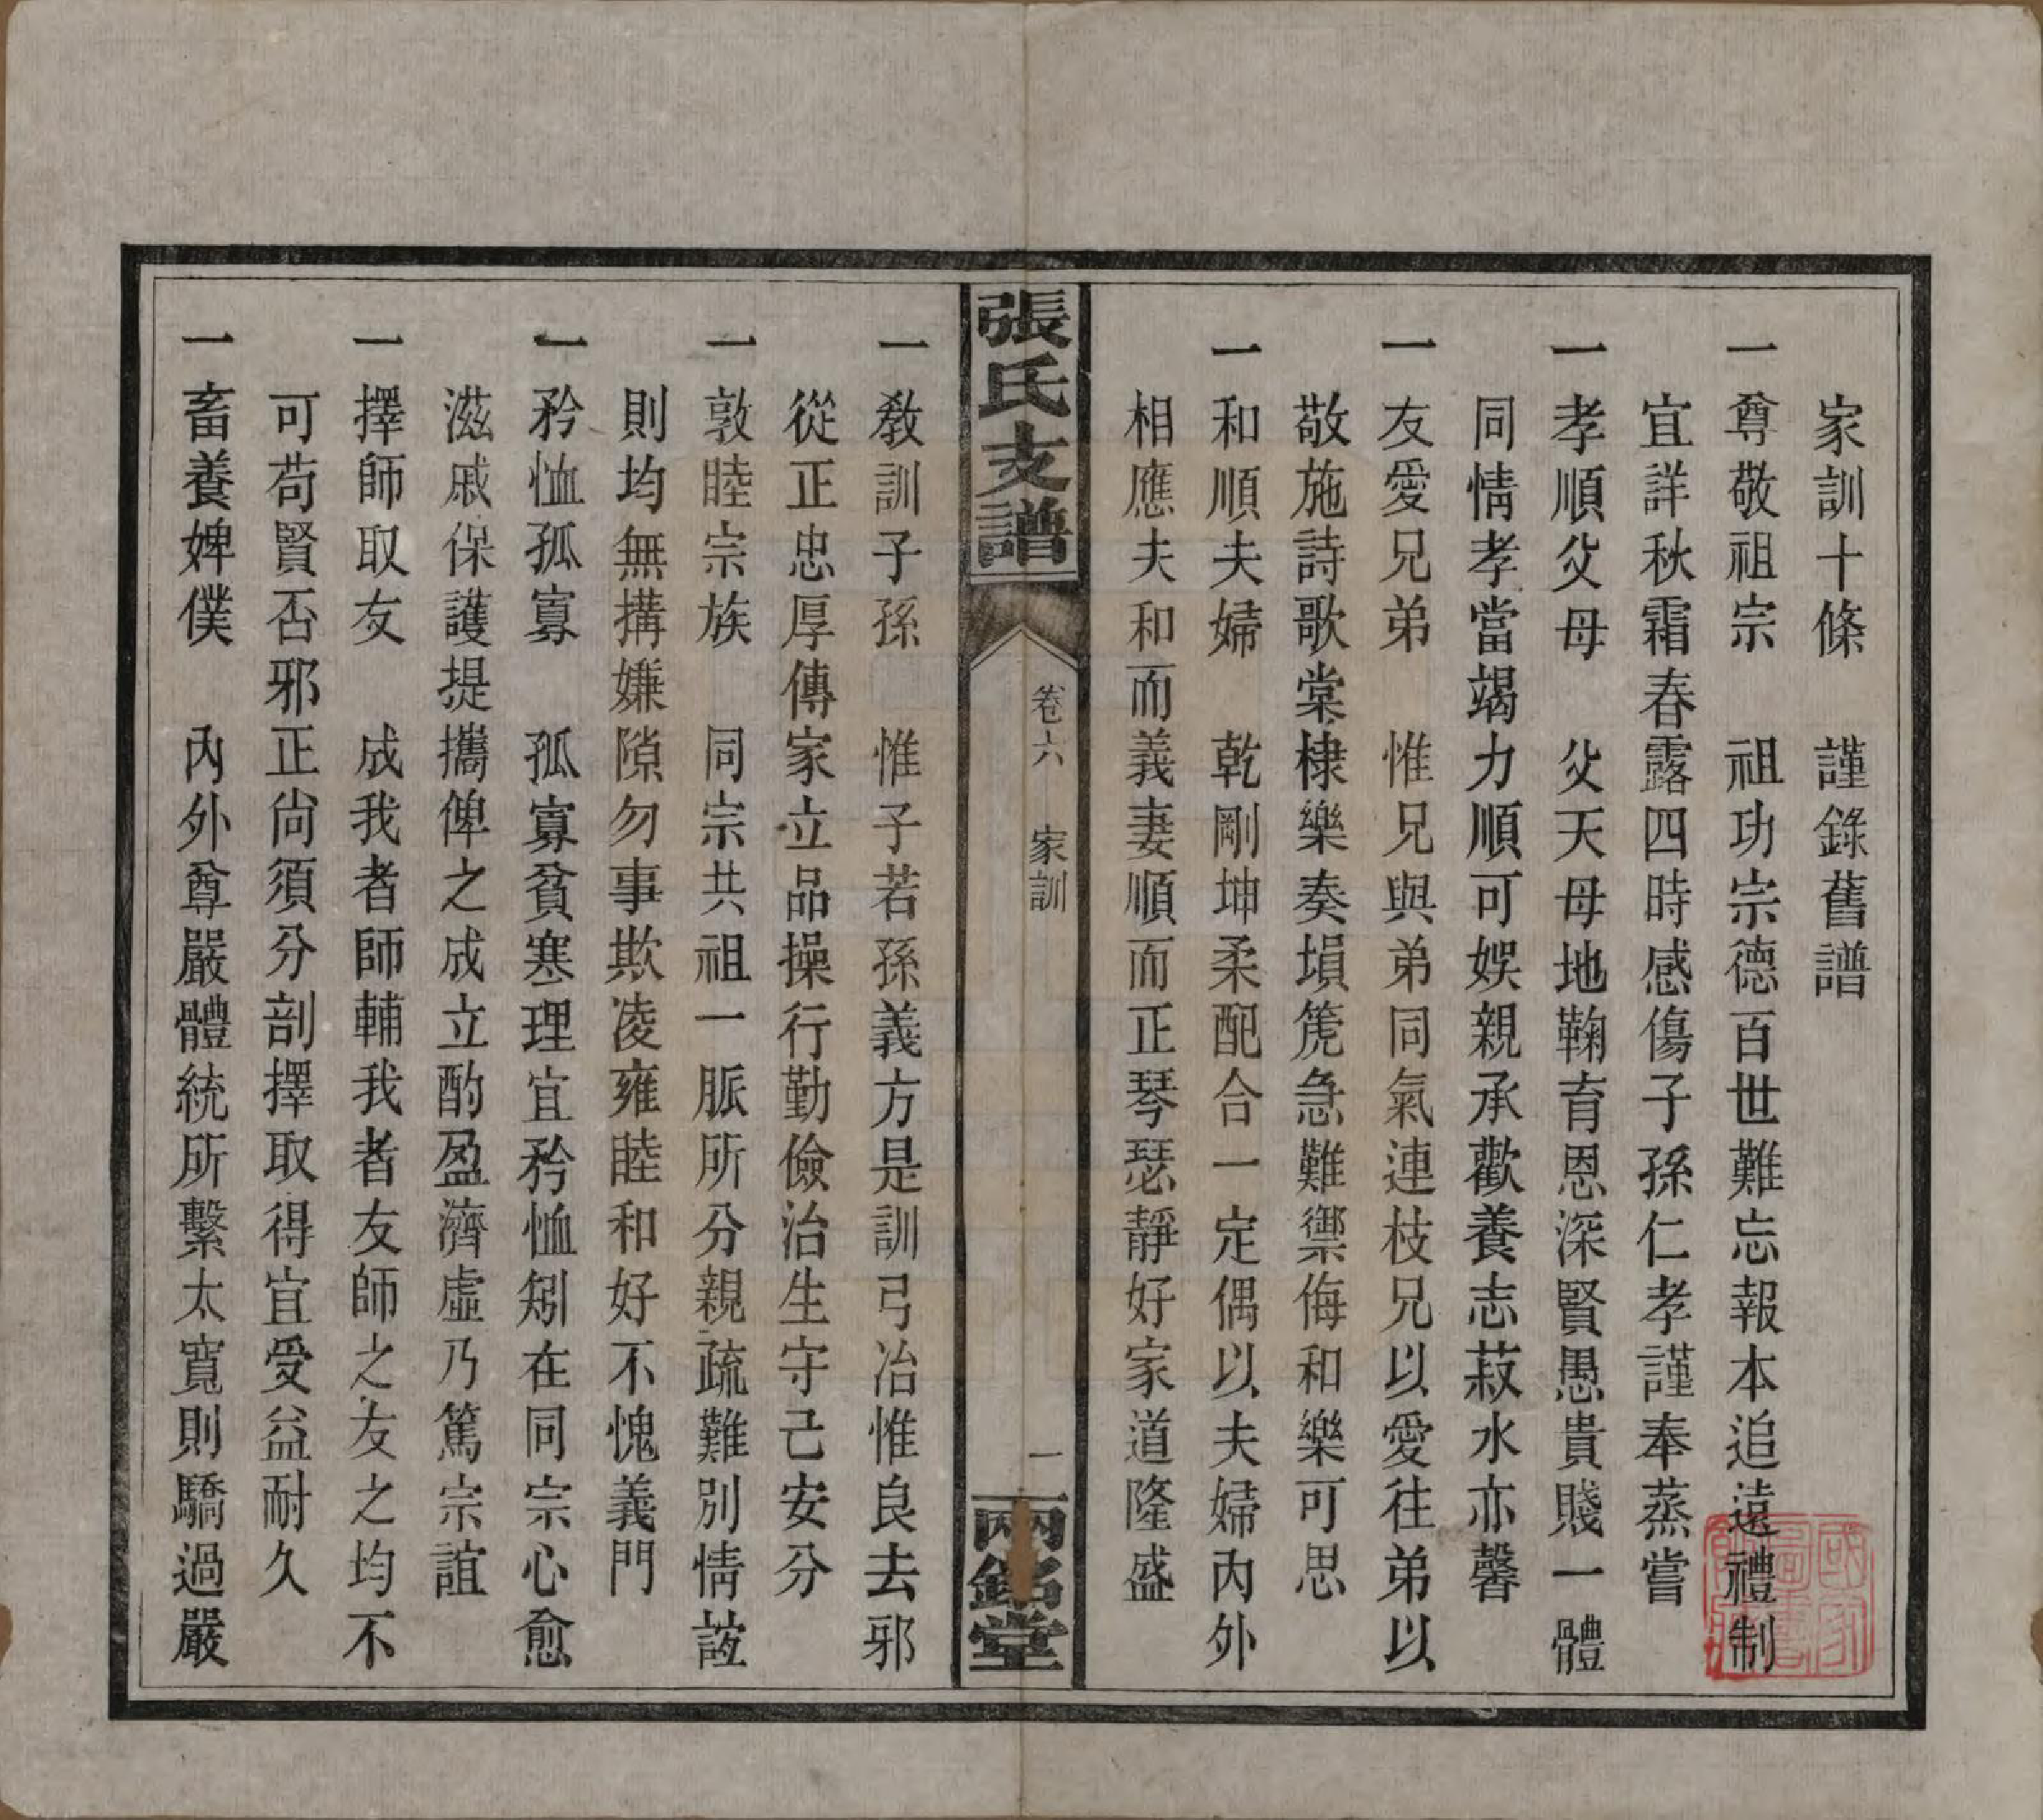 家訓十條　謹錄舊譜
一尊敬祖宗　祖功宗德百世難忘報本追遠禮制
宜詳秋霜春露四時感傷子孫仁孝謹奉蒸嘗
一孝順父母　父天母地鞠育恩深賢愚貴賤一體
同情孝當竭力順可娛親承歡養志菽水亦馨
一友愛兄弟　惟兄與弟同氣連枝兄以愛往弟以
敬施詩歌棠棣樂奏塤箎急難禦侮和樂可思
一和順夫婦　乾剛坤柔配合一定偶以夫婦內外
相應夫和而義妻順而正琴瑟靜好家道隆盛
張氏支譜
卷六　家訓
一
兩銘堂
一教訓子孫　惟子若孫義方是訓弓冶惟良去邪
從正忠厚傳家立品操行勤儉治生守己安分
一敦睦宗族　同宗共祖一脈所分親疏難別情誼
則均無搆嫌隙勿事欺凌雍睦和好不愧義門
一矜恤孤寡　孤寡貧寒理宜矜恤矧在同宗心愈
滋戚保護提攜俾之成立酌盈濟虛乃篤宗誼
一擇師取友　成我者師輔我者友師之友之均不
可苟賢否邪正尙須分剖擇取得宜受益耐久
一畜養婢僕　內外尊嚴體統所繫太寬則驕過嚴